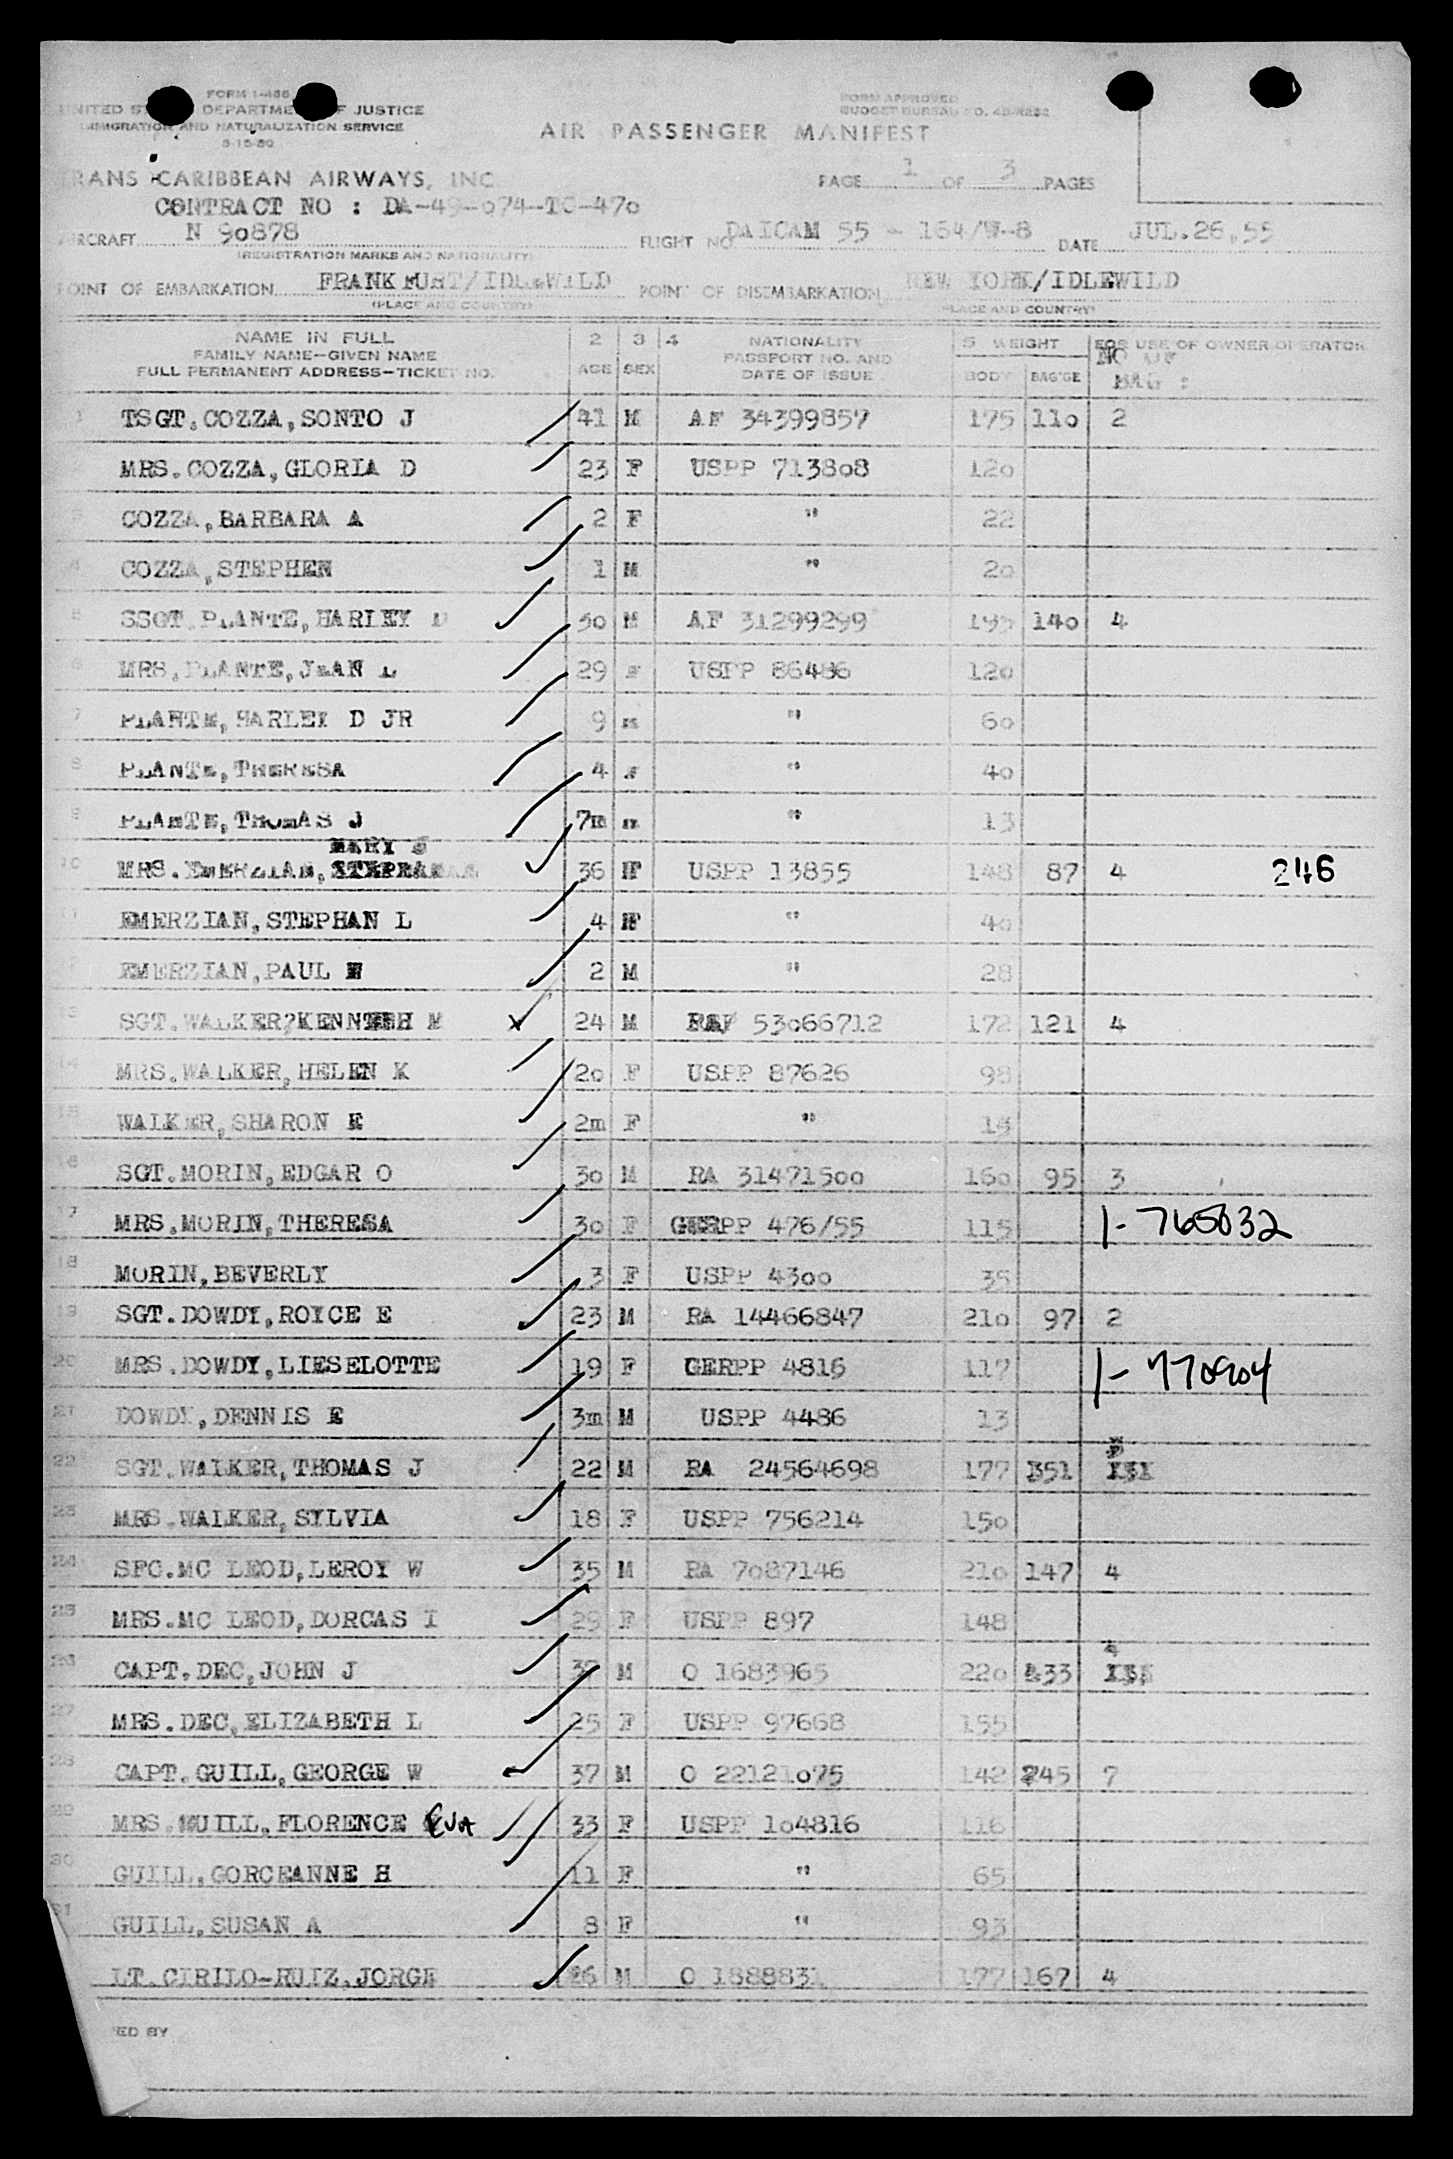 FORM I-466
UNITED DEPARTMENT OF JUSTICE
IMMIGRATION AND NATURALIZATION SERVICE
FORM APPROVED
BUDGET BUREAU NO.
AIR PASSENGER MANIFEST
TRANS CARIBBEAN AIRWAYS, INC
PAGE 1 OF 3 PAGES
CONTRACT NO : DA-49-074-TC-470
AIRCRAFT N 90878 FLIGHT NO DAICAM 55 - 164/W-8 DATE JUL.26,55
(REGISTRATION MARKS AND NATIONALITY)
POINT OF EMBARKATION FRANKFURT/IDLEWILD POINT OF DISEMBARKATION NEW YORK/IDLEWILD
(PLACE AND COUNTRY) (PLACE AND COUNTRY)
NAME IN FULL 2 3 4 NATIONALITY 5 WEIGHT FOR USE OF OWNER OPERATOR
FAMILY NAME—GIVEN NAME PASSPORT NO. AND NO OF
FULL PERMANENT ADDRESS—TICKET NO. AGE SEX DATE OF ISSUE BODY BAG'GE BAG :
1 TSGT.COZZA,SONTO J 41 M AF 34399857 175 110 2
MRS.COZZA,GLORIA D 23 F USPP 713808 120
3 COZZA,BARBARA A 2 F " 22
4 COZZA,STEPHEN 1 M " 20
5 SSGT.PLANTE,HARLEY D 50 M AF 31299299 195 140 4
6 MRS.PLANTE,JEAN L 29 F USPP 86486 120
7 PLANTE,HARLEY D JR 9 M " 60
8 PLANTE,THERESA 4 F " 40
9 PLANTE,THOMAS J 7m M " 13
MARY S
10 MRS.EMERZIAN, 36 F USPP 13855 148 87 4 246
11 EMERZIAN,STEPHAN L 4 " 40
12 EMERZIAN,PAUL 2 M " 28
13 SGT.WALKER?KENNTEH M 24 M 53066712 172 121 4
14 MRS.WALKER,HELEN K 20 F USPP 87626 98
15 WALKER,SHARON E 2m F " 15
16 SGT.MORIN,EDGAR O 30 M RA 31471500 160 95 3
17 MRS.MORIN,THERESA 30 F GERPP 476/55 115 1- 765032
18 MORIN,BEVERLY 3 F USPP 4300 35
19 SGT.DOWDY,ROYCE E 23 M RA 14466847 210 97 2
20 MRS.DOWDY,LIESELOTTE 19 F GERPP 4816 117 1- 770904
21 DOWDY,DENNIS E 3m M USPP 4486 13
22 SGT.WALKER,THOMAS J 22 M RA 24564698 177 351
23 MRS.WALKER,SYLVIA 18 F USPP 756214 150
24 SFC.MC LEOD,LEROY W 35 M RA 7087146 210 147 4
25 MRS.MC LEOD,DORCAS I 29 F USPP 897 148
4
26 CAPT.DEC,JOHN J M O 1683965 220 433
27 MRS.DEC,ELIZABETH L 25 F USPP 97668 155
28 CAPT.GUILL,GEORGE W 37 M O 22121075 142 245 7
29 MRS.GUILL,FLORENCE EVA 33 F USPP 104816 116
30 GUILL,GORCEANNE H 11 F " 65
31 GUILL,SUSAN A 8 F " 93
LT.CIRILO-RUIZ,JORGE 26 M O 1888831 177 167 4
ED BY